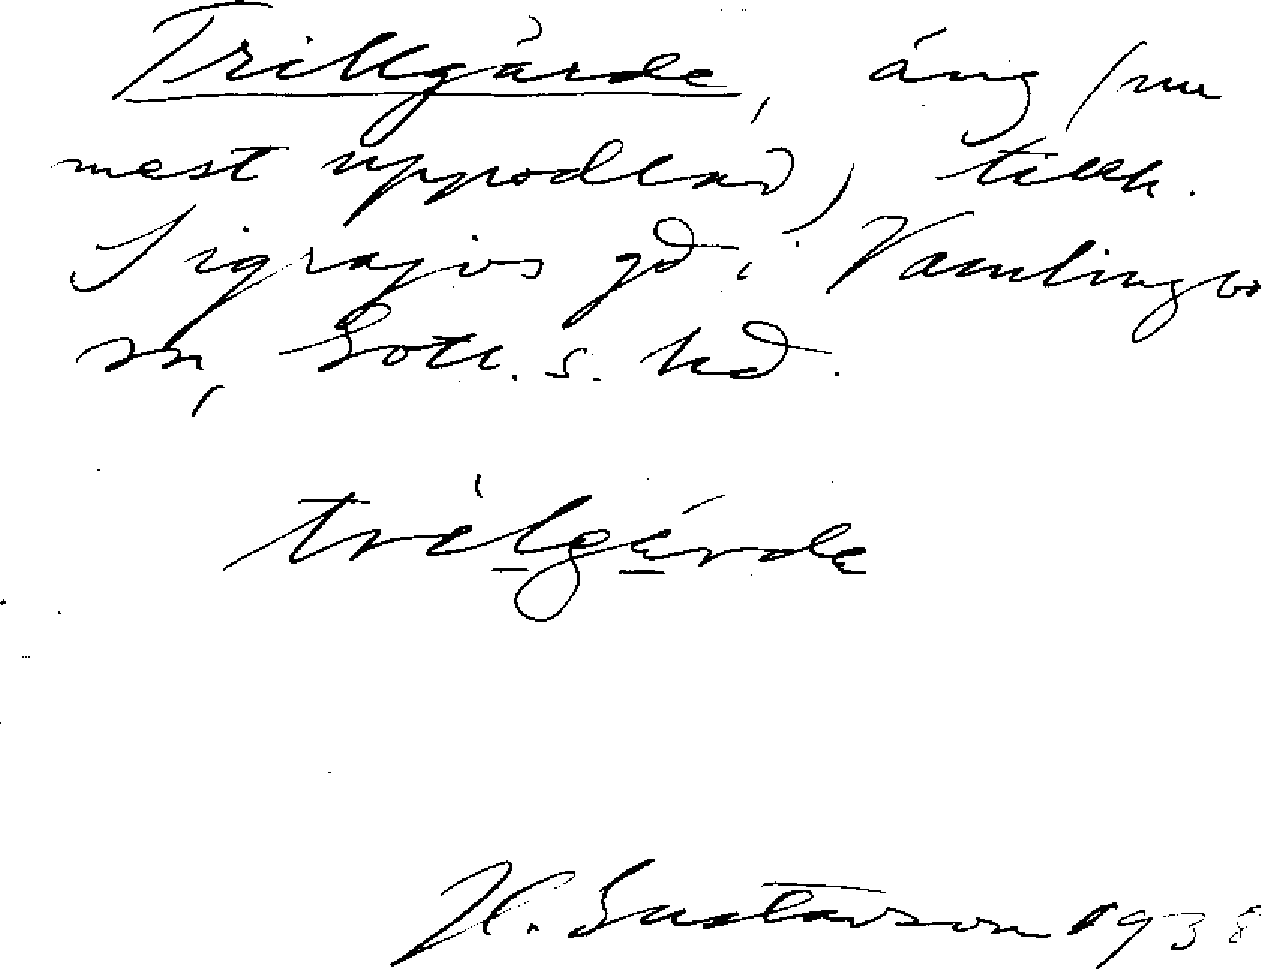 Trillgärde, äng (nu
mest uppodlad), tillh.
Sigrajvs gd i Vamlingbo
sn, Gotl. s. hd.
trilgärde
H. Gustavson 1938